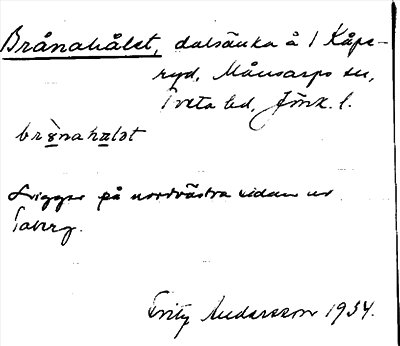 Brånahålet, dalsänka å 1 Kåpe-
ryd, Månsarps sn,
Tveta hd, Jönk. l.
brånahalət
Ligger på nordvästra sidan av
Taberg.
Fritz Andersson 1934.